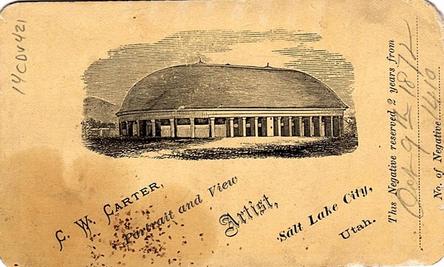 14CDV421
C. W. CARTER,
Portrait and View
Artist,
Salt Lake City,
Utah.
This Negative reserved 2 years from
Oct 9th 1872
No. of Negative